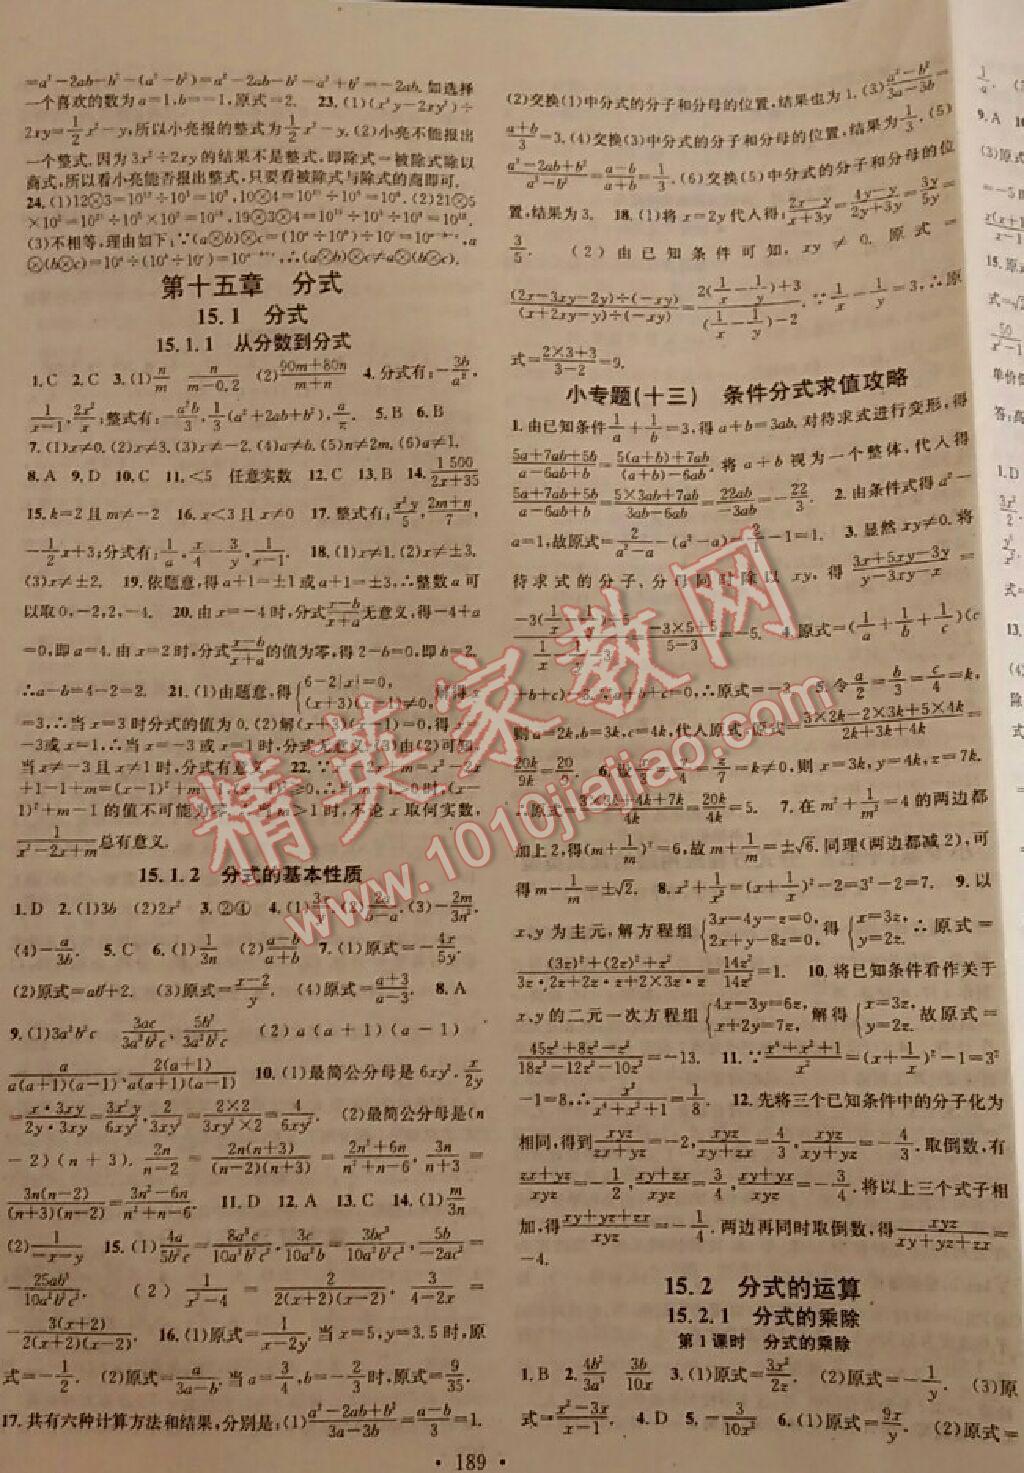 =a²-2ab-b²-(a²-b²)=a²-2ab-b²-a²+b²=-2ab.如选择
一个喜欢的数为a=1,b=-1,原式=2. 23.(1)(x³y-2xy²)÷
2xy=1/2x²-y,所以小亮报的整式为1/2x²-y.(2)小亮不能报出
一个整式.因为3x²÷2xy的结果不是整式,即除式=被除式除以
商式,所以看小亮能否报出整式,只要看被除式与除式的商即可.
24.(1)12⊗3=10¹²÷10³=10⁹,10⊗4=10¹⁰÷10⁴=10⁶.(2)21⊗5
×10²=10²¹÷10⁵×10²=10¹⁸,19⊗3⊗4=10¹⁹÷10³÷10⁴=10¹².
(3)不相等,理由如下:∵(a⊗b)⊗c=(10ᵃ÷10ᵇ)÷10ᶜ
第十五章 分式
15.1 分式
15.1.1 从分数到分式
1.C 2.C 3.(1)n/m n/(m-0.2) (2)(90m+80n)/(m+n) 4.分式有:-3b/a²,
1/(x-1),2x²/x;整式有:-a²b/3,1/3(a²+2ab+b²),a/π. 5.B 6.B
7.(1)x≠0.(2)x≠3.(3)x≠-2.(4)a≠b.(5)n≠2m.(6)a≠1.
8.A 9.D 10.C 11.<5 任意实数 12.C 13.B 14.1 500/(2x+35)
15.k=2且m≠-2 16.x<3且x≠0 17.整式有:x²y/5,(2m+n)/7,
-1/2x+3;分式有:1/a,x/4-3/y,1/(x-1). 18.(1)x≠1.(2)x≠±3.
(3)x≠±2. 19.依题意,得a+1=±1或a+1=±3,∴整数a可
以取0,-2,2,-4. 20.由x=-4时,分式(x-b)/(x+a)无意义,得-4+a
=0,即a=4.由x=2时,分式(x-b)/(x+a)的值为零,得2-b=0,即b=2.
∴a-b=4-2=2. 21.(1)由题意,得{6-2|x|=0,(x+3)(x-1)≠0, 解得x
=3,∴当x=3时分式的值为0.(2)解(x+3)(x-1)=0,得x=
-3或x=1,∴当x=-3或x=1时,分式无意义.(3)由(2)可知,
当x≠-3且x≠1时,分式有意义. 22.∵x²-2x+m=x²-2x
+1-1+m=(x-1)²+m-1,(x-1)²≥0,∴当m-1>0时,(x-
1)²+m-1的值不可能为零.∴当m>1时,不论x取何实数,
1/(x²-2x+m)总有意义.
15.1.2 分式的基本性质
1.D 2.(1)3b (2)2x² 3.②④ (3)-2m/3n².
(4)-a/3b. 5.C 6.(1)1/3n (2)(a-b)/(a+b) 7.(1)原式=-4x/5y.
(2)原式=ab²+2. (3)原式=(x-2)/y. (4)原式=(a+3)/(a-3). 8.A
9.(1)3a²b²c 3ac/3a²b²c、5b²/3a²b²c (2)a(a+1)(a-1)
a/a(a+1)(a-1)、2(a+1)/a(a+1)(a-1) 10.(1)最简公分母是6xy².x/2y
=x·3xy/2y·3xy=3x²y/6xy²,2/3xy²=2×2/3xy²×2=4/6xy². (2)最简公分母是(n
-2)(n+3).2n/(n-2)=2n(n+3)/(n-2)(n+3)=(2n²+6n)/(n²+n-6),3n/(n+3)=
3n(n-2)/(n+3)(n-2)=(3n²-6n)/(n²+n-6). 11.D 12.A 13.C 14.(1)m/3n
(2)1/(-x-y) 15.(1)4a/5b²c=8a³c/10a²b²c²,3c/10a²b=3bc³/10a²b²c²,5b/-2ac²=
-25ab³/10a²b²c². (2)1/(x²-4)=2/2(x+2)(x-2),3/(4-2x)=
-3(x+2)/2(x+2)(x-2). 16.(1)原式=1/(x-2y),当x=5,y=3.5时,原
式=-1/2. (2)原式=a/(3a-b).当a=3/4,b=-2/3时,原式=9/35.
17.共有六种计算方法和结果,分别是:(1)(a²-2ab+b²)/(3a-3b)=(a-b)/3=1.
(2)交换(1)中分式的分子和分母的位置,结果也为1.(3)(a²-b²)/(3a-3b)=
(a+b)/3=3.(4)交换(3)中分式的分子和分母的位置,结果为1/3.(5)
(a²-2ab+b²)/(a²-b²)=(a-b)/(a+b)=1/3.(6)交换(5)中分式的分子和分母的位
置,结果为3. 18.(1)将x=2y代入得:(2x-y)/(x+3y)=(4y-y)/(2y+3y)=3y/5y=
3/5. (2)由已知条件可知,xy≠0.原式=
(2x-3xy-2y)÷(-xy)/(x+2xy-y)÷(-xy)=(2(1/x-1/y)+3)/((1/x-1/y)-2).∵1/x-1/y=3,∴原
式=(2×3+3)/(3-2)=9.
小专题(十三) 条件分式求值攻略
1.由已知条件1/a+1/b=3,得a+b=3ab.对待求式进行变形,得
(5a+7ab+5b)/(a-6ab+b)=(5(a+b)+7ab)/((a+b)-6ab).将a+b视为一个整体,代入得
(5a+7ab+5b)/(a-6ab+b)=(5×3ab+7ab)/(3ab-6ab)=22ab/-3ab=-22/3. 2.由条件式得a²-
a=1,故原式=2/(a²-a)-(a²-a)=2/1-1=1. 3.显然xy≠0.将
待求式的分子、分母同时除以xy,得(3x+5xy-3y)/(y-3xy-x)=
(-3(1/x-1/y)+5)/(1/x-1/y-3)=(-3×5+5)/(5-3)=-5. 4.原式=(1/a+1/b+1/c)(c
+b+c)-3.∵a+b+c=0,∴原式=-3. 5.令a/2=b/3=c/4=k,
则a=2k,b=3k,c=4k,代入原式,原式=(3×2k-2×3k+5×4k)/(2k+3k+4k)=
20k/9k=20/9. 6.设x/3=y/4=z/7=k≠0,则x=3k,y=4k,z=7k.
∴原式=(3×3k+4k+7k)/4k=20k/4k=5. 7.在m²+1/m²=4的两边都
加上2,得(m+1/m)²=6,故m+1/m=±√6.同理(两边都减2),可
得m-1/m=±√2. 8.x²+1/x²=(x+1/x)²-2=3²-2=7. 9.以
x、y为主元,解方程组{3x-4y-z=0,2x+y-8z=0.得{x=3z,y=2z.∴原式=
((3z)²+(2z)²+z²)/(3z·2z+2z·z+2×3z·z)=14z²/14z²=1. 10.将已知条件看作关于
x、y的二元一次方程组{4x-3y=6z,x+2y=7z,解得{x=3z,y=2z.故原式=
(45z²+8z²-z²)/(18z²-12z²-10z²)=-13. 11.∵(x⁴+x²+1)/x²=(x+1/x)²-1=3²
-1=8,∴x²/(x⁴+x²+1)=1/8. 12.先将三个已知条件中的分子化为
相同,得到xyz/(zx+yz)=-2,xyz/(xy+zx)=4/3,xyz/(xy+yz)=-4/3.取倒数,有
(zx+yz)/xyz=-1/2,(xy+zx)/xyz=3/4,(xy+yz)/xyz=-3/4.将以上三个式子相
加,得(xy+yz+zx)/xyz=-1/4.两边再同时取倒数,得xyz/(xy+yz+zx)=
-4.
15.2 分式的运算
15.2.1 分式的乘除
第1课时 分式的乘除
1.B 2.4b²/3a³ 3b/10x 3.(1)原式=3x²/2z. (2)原式=-1/y. (3)原
式=(x²-3x)/(x-1). 4.D 5.-3/10x² 6.(1)原式=9x/y. (2)原式=
· 189 ·
精英家教网
www.1010jiajiao.com